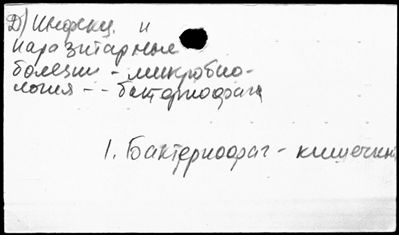 Д) Инфекц. и
паразитарные
болезни - микробио-
логия -- бактериофаги
1. Бактериофаг - кишечн